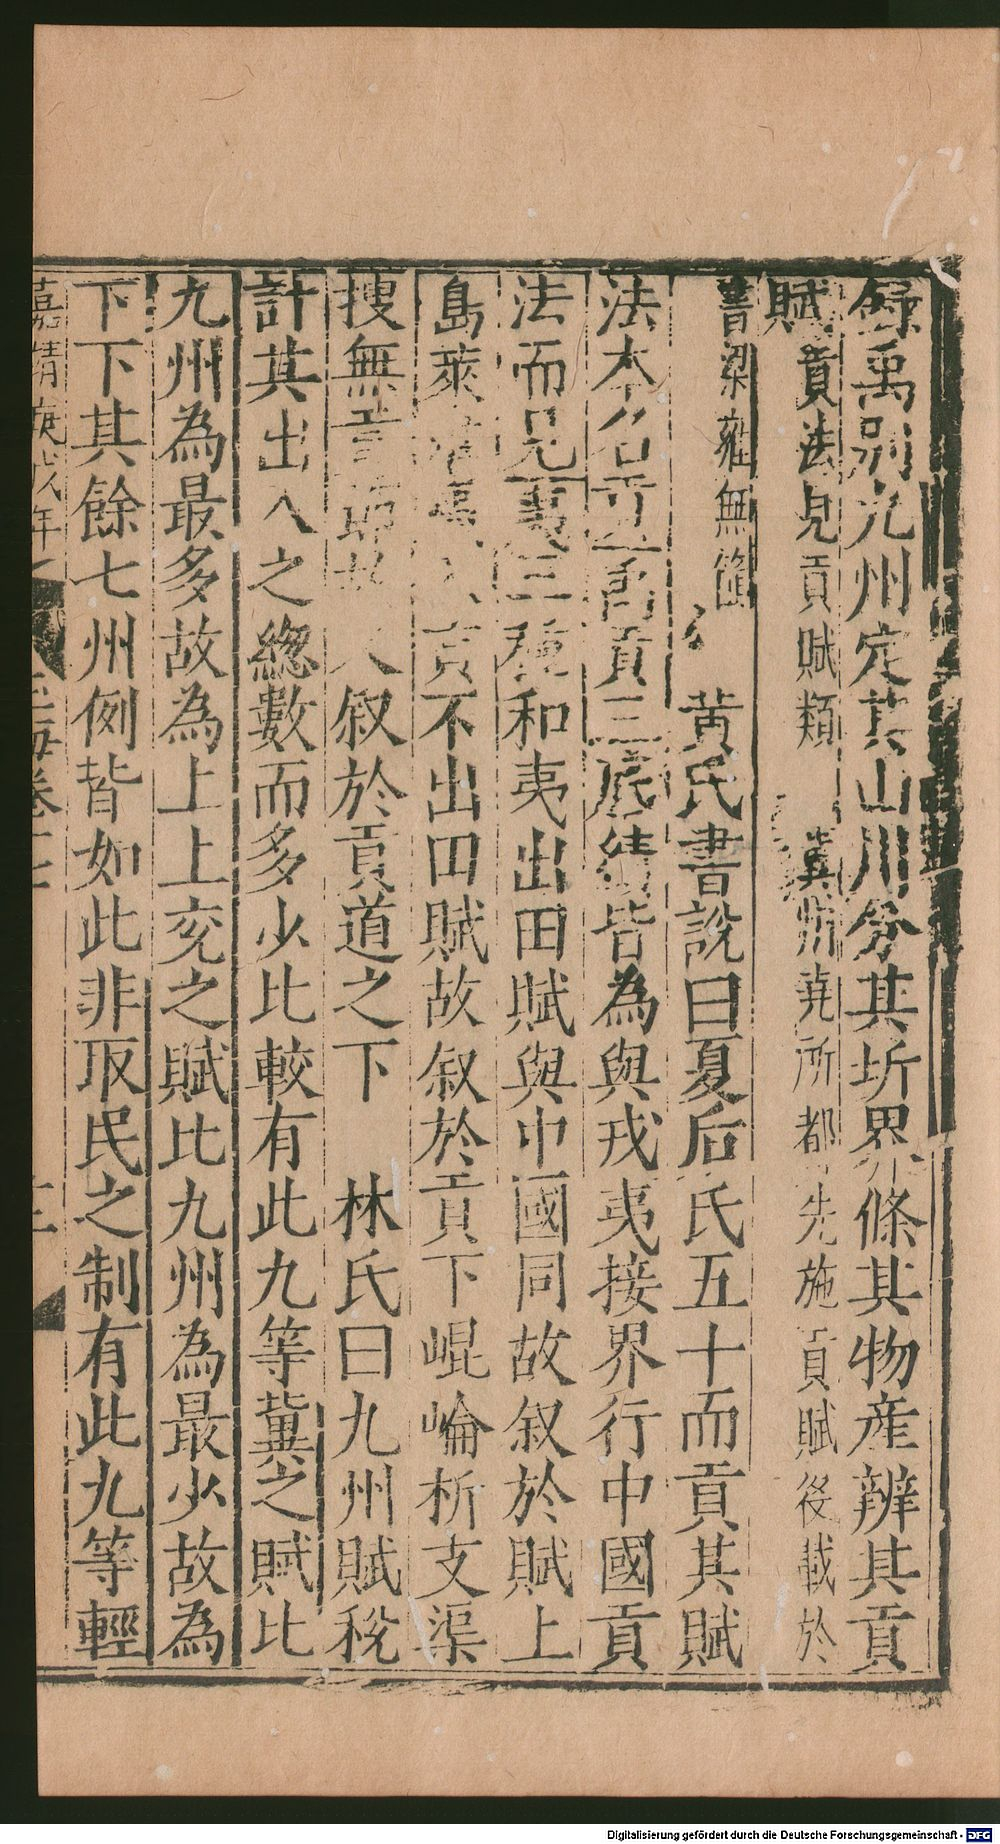 錄禹别九州定其山川分其圻界條其物産辨其貢
賦貢法見貢賦類 冀州堯所都先施貢賦後載於
書梁雍無篚 黄氏書說曰夏后氏五十而貢其賦
法本名貢禹貢三底績皆為與戎夷接界行中國貢
法而見夷三種和夷出田賦與中國同故叙於賦上
島萊淮夷 貢不出田賦故叙於貢下崐崘析支渠
搜無貢 叙於貢道之下 林氏曰九州賦稅
計其出入之總數而多少比較有此九等冀之賦比
九州為最多故為上上兖之賦比九州為最少故為
下下其餘七州例皆如此非取民之制有此九等輕
嘉靖庚戌年 玉海卷十七
Digitalisierung gefördert durch die Deutsche Forschungsgemeinschaft - DFG